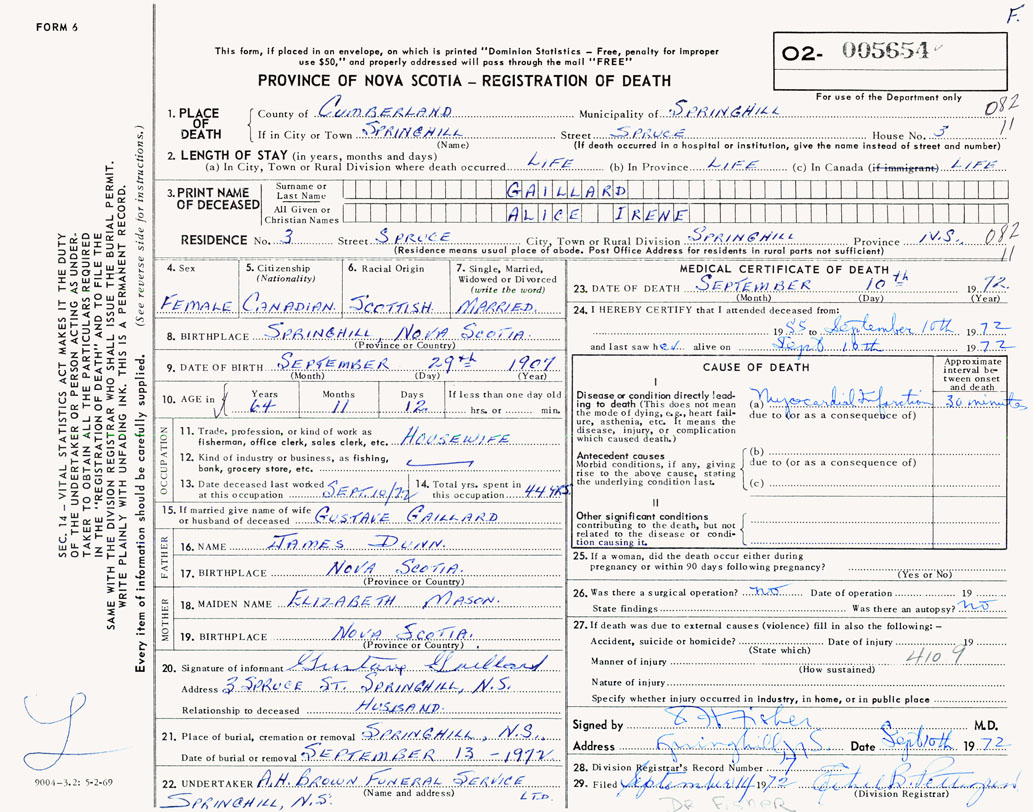 F.
FORM 6
This form, if placed in an envelope, on which is printed "Dominion Statistics – Free, penalty for improper
use $50," and properly addressed will pass through the mail "FREE"
PROVINCE OF NOVA SCOTIA – REGISTRATION OF DEATH
O2- 005654
For use of the Department only
082
11
1. PLACE OF DEATH
County of CUMBERLAND Municipality of SPRINGHILL
If in City or Town SPRINGHILL Street SPRUCE House No. 3
(Name) (If death occurred in a hospital or institution, give the name instead of street and number)
2. LENGTH OF STAY (in years, months and days)
(a) In City, Town or Rural Division where death occurred LIFE (b) In Province LIFE (c) In Canada (if immigrant) LIFE
3. PRINT NAME OF DECEASED
Surname or Last Name GAILLARD
All Given or Christian Names ALICE IRENE
RESIDENCE No. 3 Street SPRUCE City, Town or Rural Division SPRINGHILL Province N.S. 082
11
(Residence means usual place of abode. Post Office Address for residents in rural parts not sufficient)
4. Sex FEMALE
5. Citizenship (Nationality) CANADIAN
6. Racial Origin SCOTTISH
7. Single, Married, Widowed or Divorced (write the word) MARRIED.
8. BIRTHPLACE SPRINGHILL, NOVA SCOTIA.
(Province or Country)
9. DATE OF BIRTH SEPTEMBER 29th 1907
(Month) (Day) (Year)
10. AGE in Years 64 Months 11 Days 12 If less than one day old hrs. or min.
OCCUPATION
11. Trade, profession, or kind of work as
fisherman, office clerk, sales clerk, etc. HOUSEWIFE
12. Kind of industry or business, as fishing,
bank, grocery store, etc.
13. Date deceased last worked
at this occupation SEPT. 10/72
14. Total yrs. spent in
this occupation 44 YRS
15. If married give name of wife
or husband of deceased GUSTAVE GAILLARD
FATHER
16. NAME JAMES DUNN.
17. BIRTHPLACE NOVA SCOTIA.
(Province or Country)
MOTHER
18. MAIDEN NAME ELIZABETH MASON.
19. BIRTHPLACE NOVA SCOTIA.
(Province or Country)
20. Signature of informant Gustave Gaillard
Address 3 SPRUCE ST. SPRINGHILL, N.S.
Relationship to deceased HUSBAND.
21. Place of burial, cremation or removal SPRINGHILL, N.S.
Date of burial or removal SEPTEMBER 13 - 1972
22. UNDERTAKER A.H. BROWN FUNERAL SERVICE
(Name and address) LTD.
SPRINGHILL, N.S.
MEDICAL CERTIFICATE OF DEATH
23. DATE OF DEATH SEPTEMBER 10th 1972.
(Month) (Day) (Year)
24. I HEREBY CERTIFY that I attended deceased from:
1955 to September 10th 1972
and last saw her alive on Sept 10th 1972
CAUSE OF DEATH
Approximate interval between onset and death
I
Disease or condition directly leading
to death (This does not mean
the mode of dying, e.g., heart failure,
asthenia, etc. It means the
disease, injury, or complication
which caused death.)
(a) Myocardial Infarction 30 minutes
due to (or as a consequence of)
Antecedent causes
Morbid conditions, if any, giving
rise to the above cause, stating
the underlying condition last.
(b)
due to (or as a consequence of)
(c)
II
Other significant conditions
contributing to the death, but not
related to the disease or condition
causing it.
25. If a woman, did the death occur either during
pregnancy or within 90 days following pregnancy?
(Yes or No)
26. Was there a surgical operation? no Date of operation 19
State findings Was there an autopsy? no
27. If death was due to external causes (violence) fill in also the following: –
Accident, suicide or homicide? Date of injury 19
(State which)
4109
Manner of injury
(How sustained)
Nature of injury
Specify whether injury occurred in industry, in home, or in public place
Signed by Fisher M.D.
Address Springhill N.S. Date Sept 10th 1972
28. Division Registrar's Record Number
29. Filed September 14 1972
(Division Registrar)
DR FISHER
SEC. 14 – VITAL STATISTICS ACT MAKES IT THE DUTY
OF THE UNDERTAKER OR PERSON ACTING AS UNDERTAKER
TO OBTAIN ALL THE PARTICULARS REQUIRED
IN THE "REGISTRATION OF DEATH" AND TO FILE THE
SAME WITH THE DIVISION REGISTRAR WHO SHALL ISSUE THE BURIAL PERMIT.
WRITE PLAINLY WITH UNFADING INK. THIS IS A PERMANENT RECORD.
Every item of information should be carefully supplied. (See reverse side for instructions.)
9004-3.2: 5-2-69